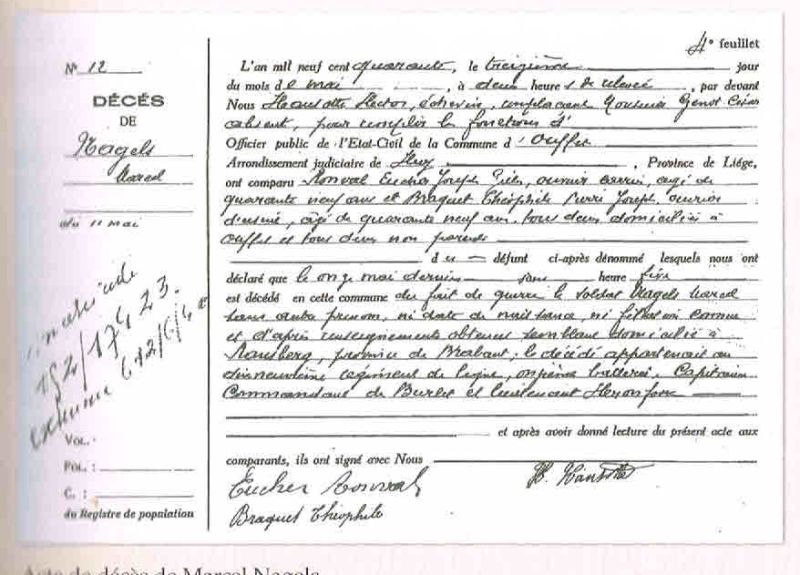 4e feuillet
N° 12
DÉCÈS
DE
Nagels
Marcel
du 11 mai
L'an mil neuf cent quarante, le treizième jour
du mois de mai, à deux heures de relevée, par devant
Nous Hansotte Hector, échevin, remplaçant Monsieur Genot César
absent, pour remplir les fonctions d'
Officier public de l'Etat-Civil de la Commune d'Ouffet
Arrondissement judiciaire de Huy, Province de Liége,
ont comparu Monval Eucher Joseph, ouvrier carrier, âgé de
quarante neuf ans et Braquet Théophile Pierre Joseph, ouvrier
d'usine, âgé de quarante neuf ans, tous deux domiciliés à
Ouffet et tous deux non parents
du défunt ci-après dénommé lesquels nous ont
déclaré que le onze mai dernier sans heure fixe
est décédé en cette commune du fait de guerre le soldat Nagels Marcel
sans autre prénom, ni date de naissance, ni filiation connue
et d'après renseignements obtenus semblant domicilié à
province de Brabant; le décédé appartenait au
dixneuvième régiment de ligne, onzième batterie. Capitaine
Commandant de Burlet et lieutenant
et après avoir donné lecture du présent acte aux
comparants, ils ont signé avec Nous
Eucher Monval
H. Hansotte
Braquet Théophile
152/17423.
VOL. :
POL. :
C. :
du Registre de population
Acte de décès de Marcel Nagels